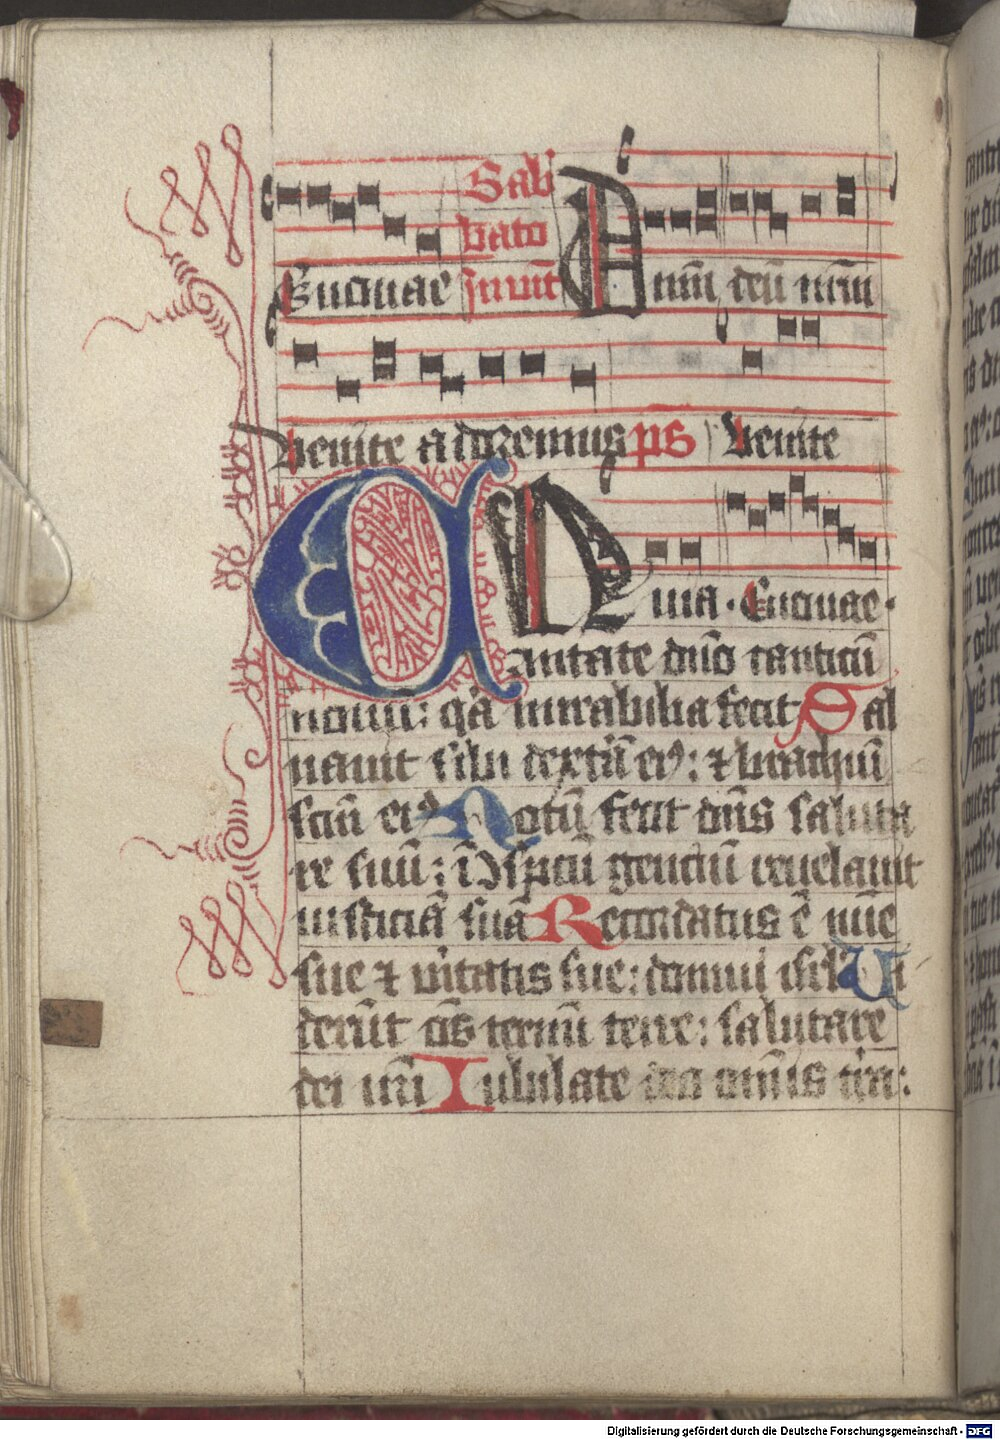 Sab
Euouae
bato
inuit
Dnm deū nrm
venite adoremus ps Venite
Quia. Euouae.
Cantate dno canticū
nouū: qa mirabilia fecit Sal
uauit sibi dextā eiꝰ: ⁊ brachiū
scm eiꝰ Notū fecit dns saluta
re suū: ī ɔspcū genciū reuelauit
iusticiā suā Recordatus ē mīe
sue ⁊ vītatis sue: domui isrl Ui
derūt oīs termī terre: salutare
dei nrī Iubilate deo omīs t̄ra:
Digitalisierung gefördert durch die Deutsche Forschungsgemeinschaft - DFG